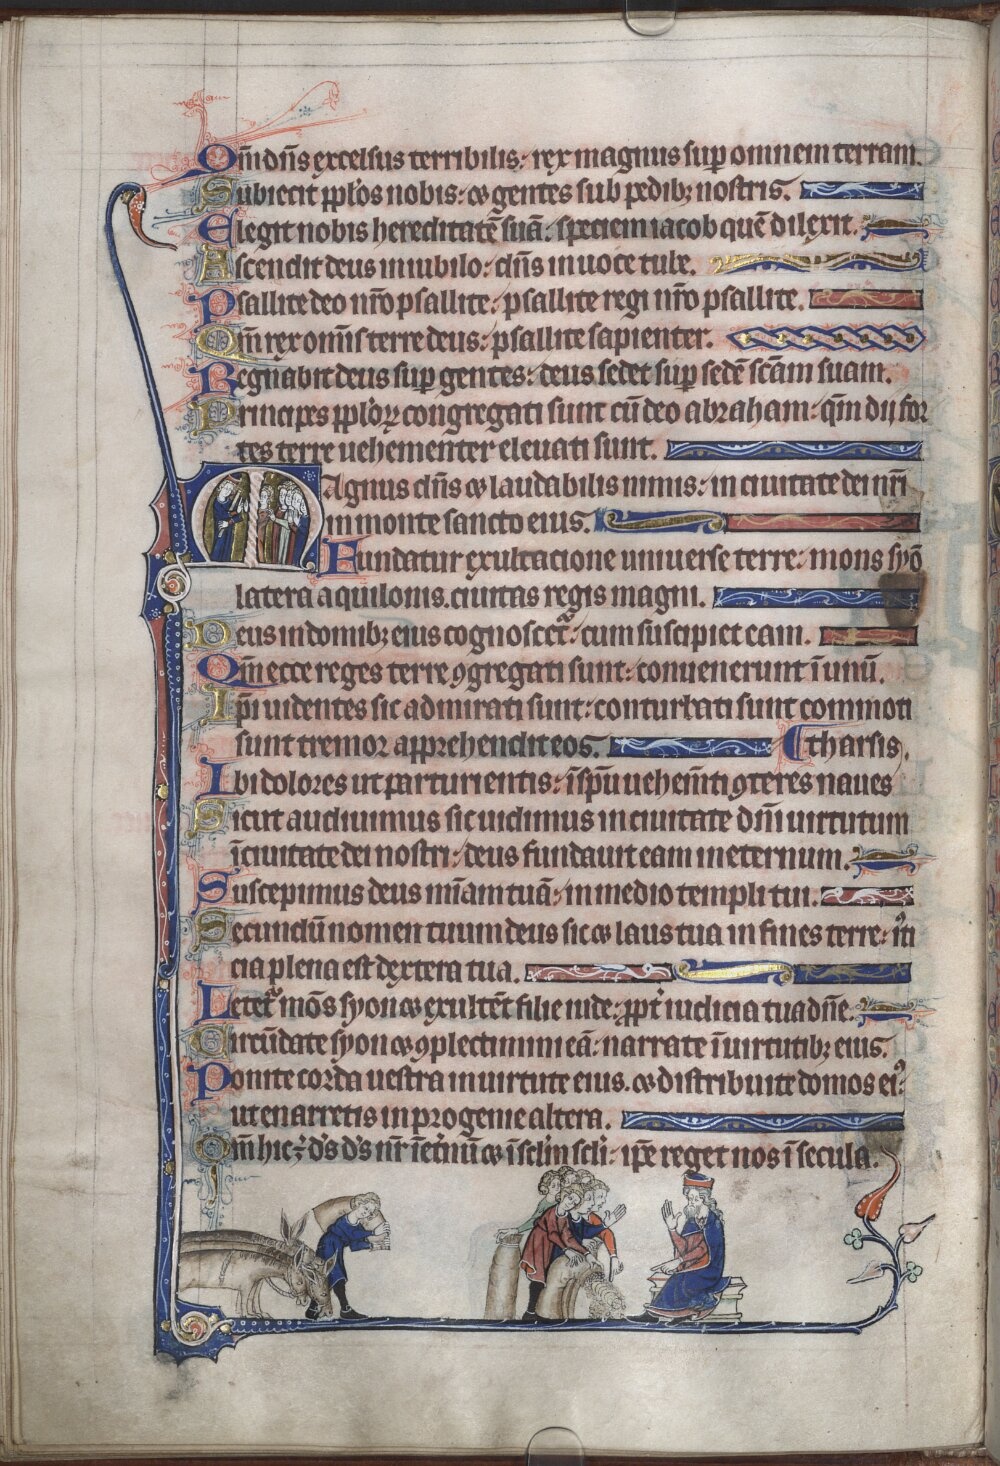 Qm̄ dn̄s excelsus terribilis: rex magnus sup̄ omnem terram.
Subiecit ppl'os nobis: ⁊ gentes sub pedibꝫ nostris.
Elegit nobis hereditatē suā: speciem iacob quē dilexit.
Ascendit deus in iubilo: dn̄s in uoce tube.
Psallite deo nr̄o psallite: psallite regi nr̄o psallite.
Qm̄ rex om̄is terre deus: psallite sapienter.
Regnabit deus sup̄ gentes: deus sedet sup̄ sedē sc̄am suam.
Principes ppl'oꝝ congregati sunt cū deo abraham: qm̄ dij for
tes terre uehementer eleuati sunt.
Magnus dn̄s ⁊ laudabilis nimis: in ciuitate dei nr̄i
in monte sancto eius.
Fundatur exultacione uniuerse terre: mons syō
latera aquilonis. ciuitas regis magni.
Deus in domibꝫ eius cognoscet᷑: cum suscipiet eam.
Qm̄ ecce reges terre ꝯgregati sunt: conuenerunt ī unū.
Ip̄i uidentes sic admirati sunt: conturbati sunt commoti
sunt tremor apprehendit eos. tharsis.
Ibi dolores ut parturientis: ī sp̄u uehem̄ti ꝯteres naues
Sicut audiuimus sic uidimus in ciuitate dn̄i uirtutum
ī ciuitate dei nostri: deus fundauit eam in eternum.
Suscepimus deus mīam tuā: in medio templi tui.
Secundū nomen tuum deus sic ⁊ laus tua in fines terre: iti
cia plena est dextera tua.
Letet᷑ mōs syon ⁊ exultēt filie iude: ꝓpt̄ iudicia tua dn̄e.
Circūdate syon ⁊ ꝯplectimini eā: narrate ī uirtutibꝫ eius.
Ponite corda uestra in uirtute eius. ⁊ distribuite domos ei᷒:
ut enarretis in progenie altera.
Qm̄ hic ē ds̄ ds̄ nr̄ ī et̄nū ⁊ ī scl̄m scl̄i: ip̄e reget nos ī secula.